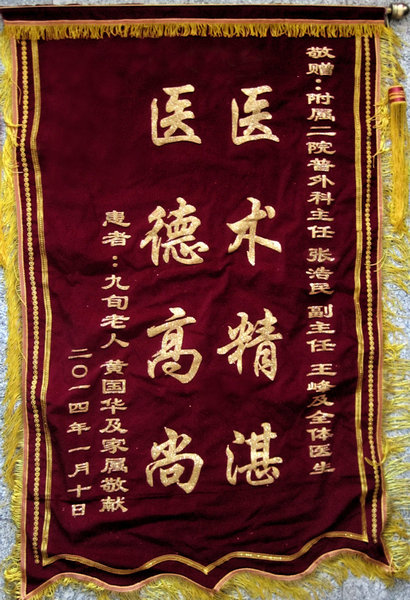 敬赠：附属二院普外科主任 张浩民 副主任 王峰及全体医生
医术精湛
医德高尚
患者：九旬老人 黄国华及家属敬献
二〇一四年一月十日